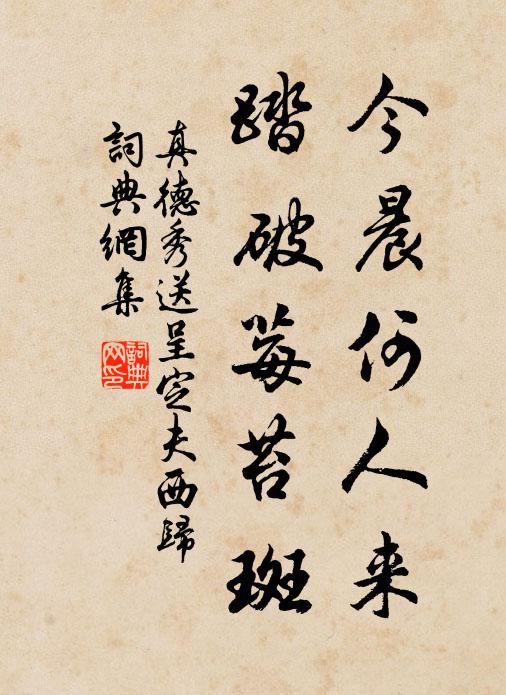 今晨何人来
踏破莓苔斑
真德秀送呈定夫西歸
詞典網集
詞典
网印